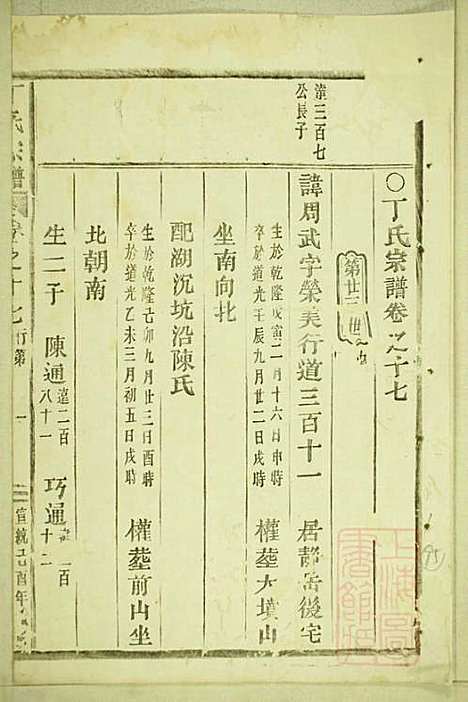 丁氏宗譜卷之十七
第廿三世
公長子
諱周武字榮美行道三百十一 居靜岳後宅
生於乾隆戊寅二月十六日申時
卒於道光壬辰九月廿二日戌時
權葬大墳山
坐南向北
配湖沉坑沿陳氏
生於乾隆己卯九月廿三日酉時
卒於道光乙未三月初五日戌時
權葬前山坐
北朝南
生二子 陳通 遠二百八十一 巧通
丁氏宗譜 卷之十七 行第 一 宣統己酉年
上海圖書館藏
95